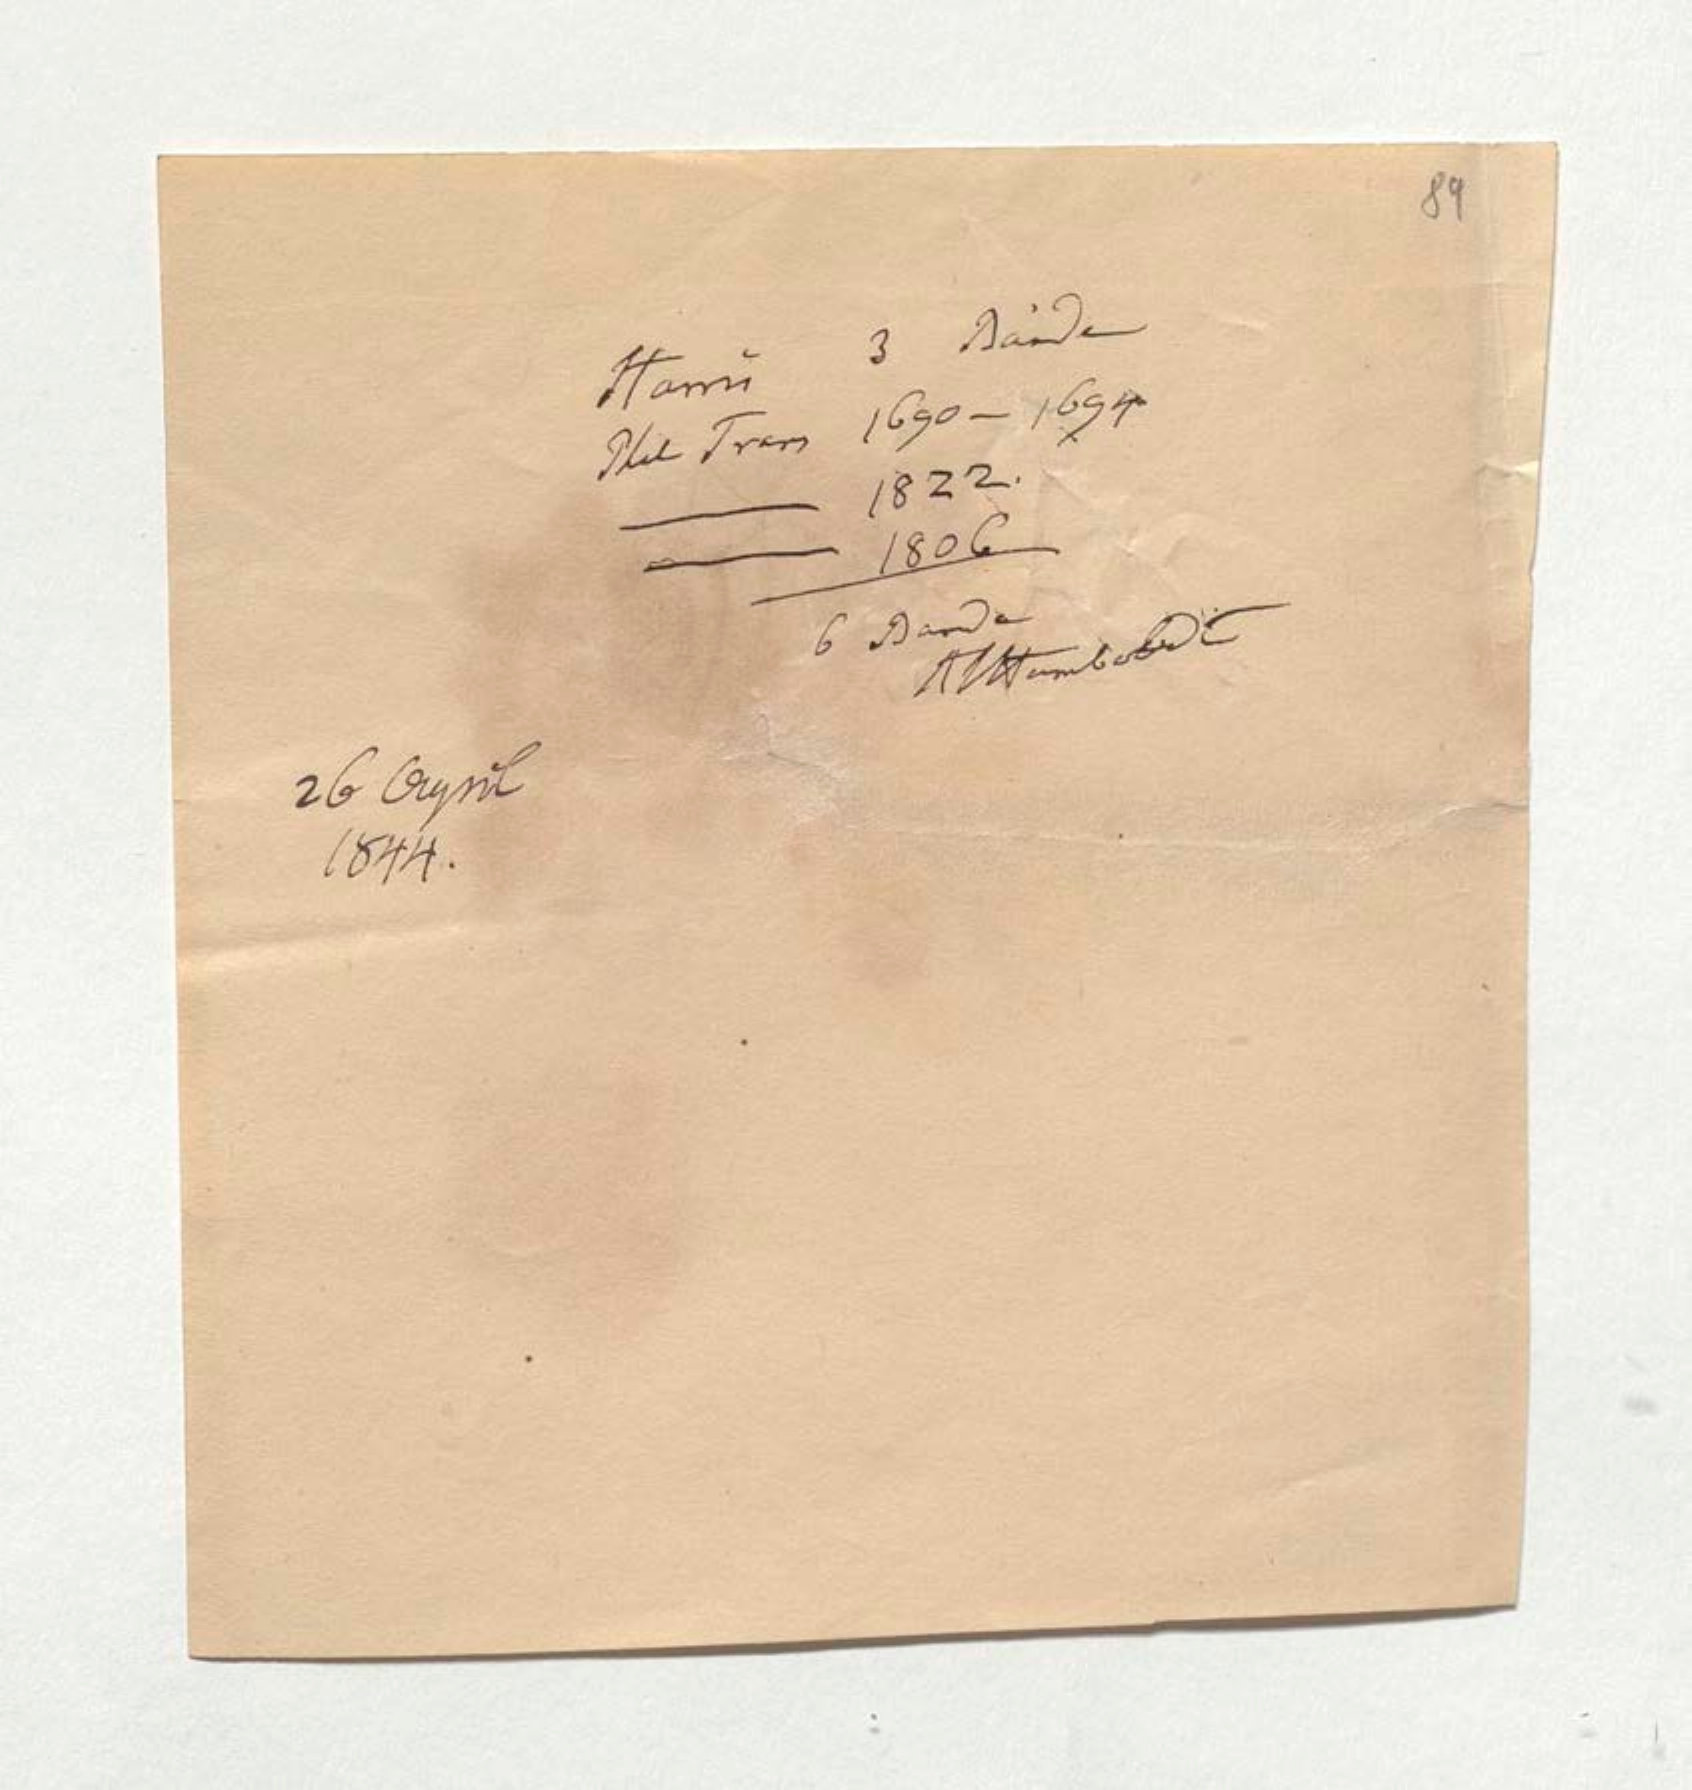 89
Harris 3 Bände
Phil Trans 1690 – 1694
——— 1822.
——— 1806
6 Bände
AvHumboldt
26 April
1844.